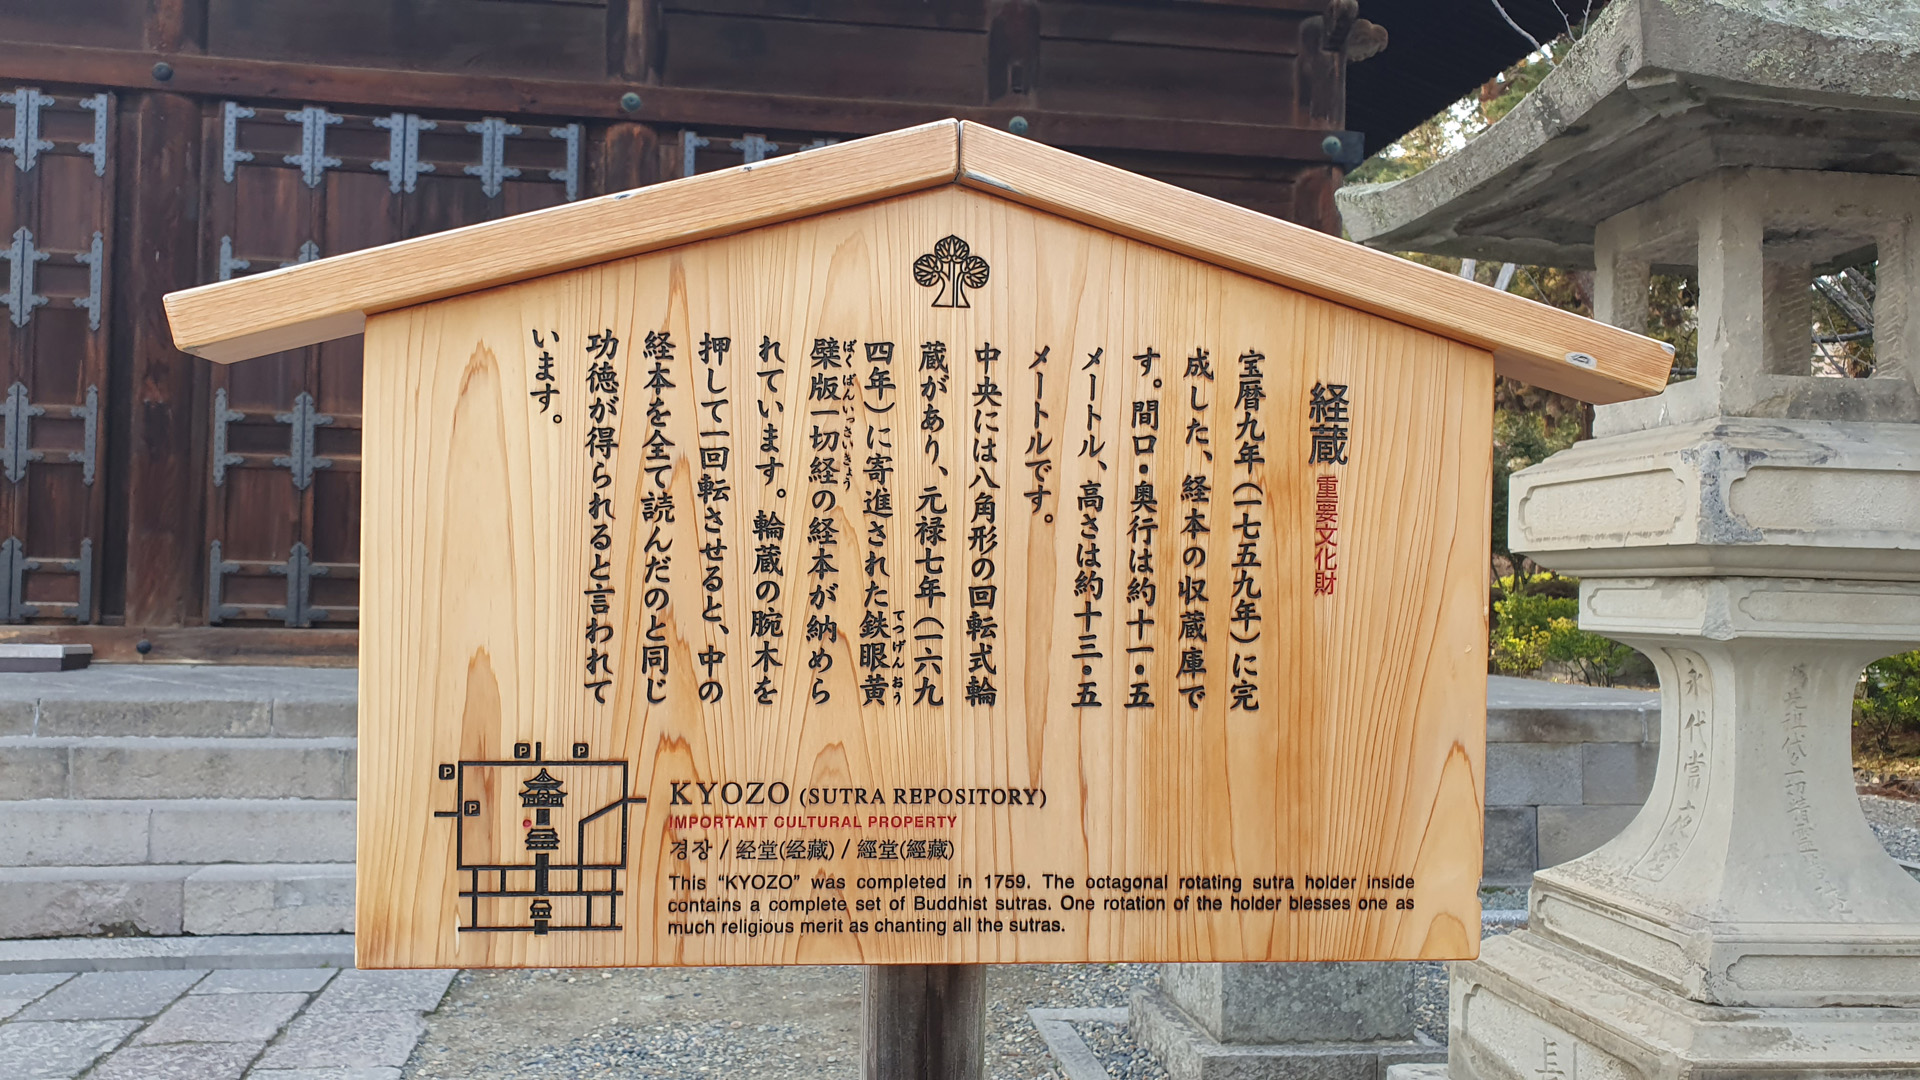 経蔵 重要文化財
宝暦九年(一七五九年)に完
成した、経本の収蔵庫で
す。間口・奥行は約十一・五
メートル、高さは約十三・五
メートルです。
中央には八角形の回転式輪
蔵があり、元禄七年(一六九
四年)に寄進された鉄眼黄
てつげんおう
檗版一切経の経本が納めら
ばくばんいっさいきょう
れています。輪蔵の腕木を
押して一回転させると、中の
経本を全て読んだのと同じ
功徳が得られると言われて
います。
P
P
P
P
KYOZO (SUTRA REPOSITORY)
IMPORTANT CULTURAL PROPERTY
경장 / 经堂(经藏) / 經堂(經藏)
This “KYOZO” was completed in 1759. The octagonal rotating sutra holder inside
contains a complete set of Buddhist sutras. One rotation of the holder blesses one as
much religious merit as chanting all the sutras.
永代常夜